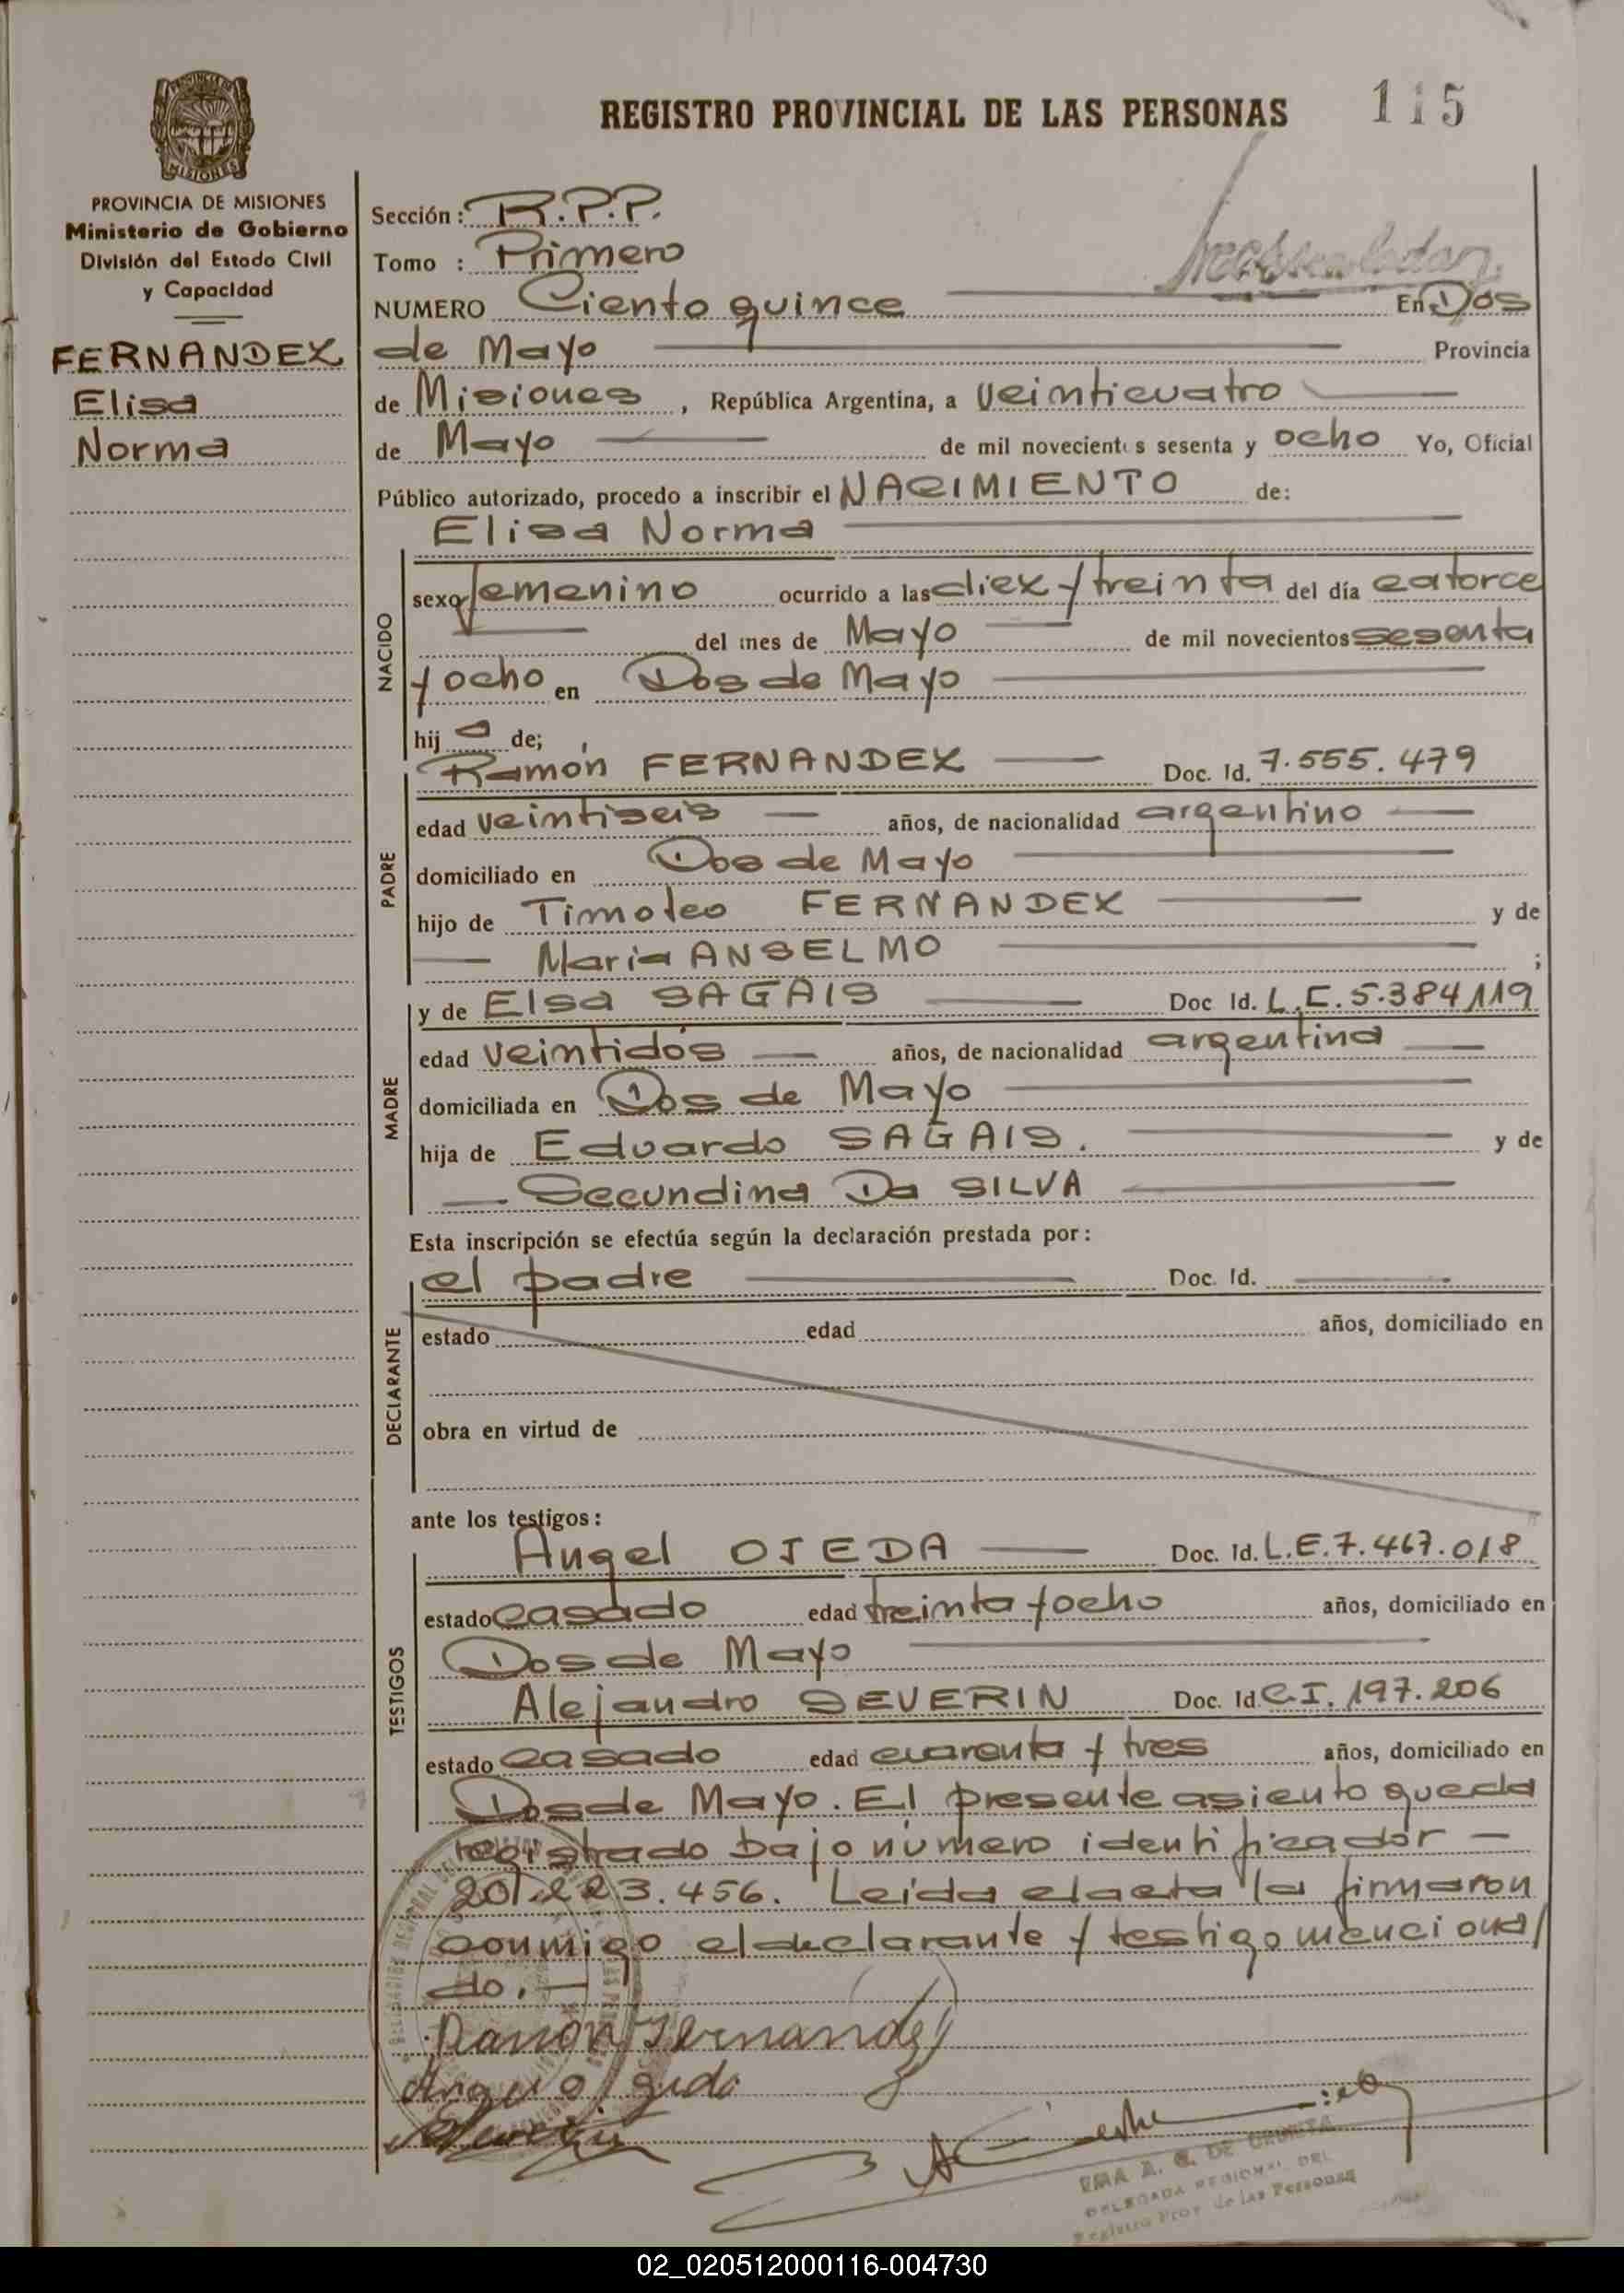 REGISTRO PROVINCIAL DE LAS PERSONAS 115
PROVINCIA DE MISIONES
MISIONES
PROVINCIA DE MISIONES
Ministerio de Gobierno
División del Estado Civil
y Capacidad
FERNANDEZ
Elisa
Norma
Sección: R.P.P.
Tomo : Primero
NUMERO Ciento quince En Dos
de Mayo Provincia
de Misiones, República Argentina, a veinticuatro
de Mayo de mil novecientos sesenta y ocho Yo, Oficial
Público autorizado, procedo a inscribir el NACIMIENTO de:
Elisa Norma
NACIDO
sexo femenino ocurrido a las diez y treinta del día catorce
del mes de Mayo de mil novecientos sesenta
y ocho en Dos de Mayo
hij a de;
PADRE
Ramón FERNANDEZ Doc. Id. 7.555.479
edad veintiseis años, de nacionalidad argentino
domiciliado en Dos de Mayo
hijo de Timoteo FERNANDEZ y de
Maria ANSELMO ;
MADRE
y de Elsa SAGAIS Doc Id. L.C. 5.384.119
edad veintidós años, de nacionalidad argentina
domiciliada en Dos de Mayo
hija de Eduardo SAGAIS. y de
Secundina Da SILVA
Esta inscripción se efectúa según la declaración prestada por:
DECLARANTE
el padre Doc. Id.
estado edad años, domiciliado en
obra en virtud de
ante los testigos:
TESTIGOS
Angel OJEDA Doc. Id. L.E. 7.467.018
estado casado edad treinta y ocho años, domiciliado en
Dos de Mayo
Alejandro SEVERIN Doc. Id. C.I. 197.206
estado casado edad cuarenta y tres años, domiciliado en
Dos de Mayo. El presente asiento queda
registrado bajo número identificador -
20.223.456. Leida el acta la firmaron
conmigo el declarante y testigo menciona/
do.-
Ramon Fernandez
DELEGADA REGIONAL DEL
Registro Prov. de las Personas
02_020512000116-004730